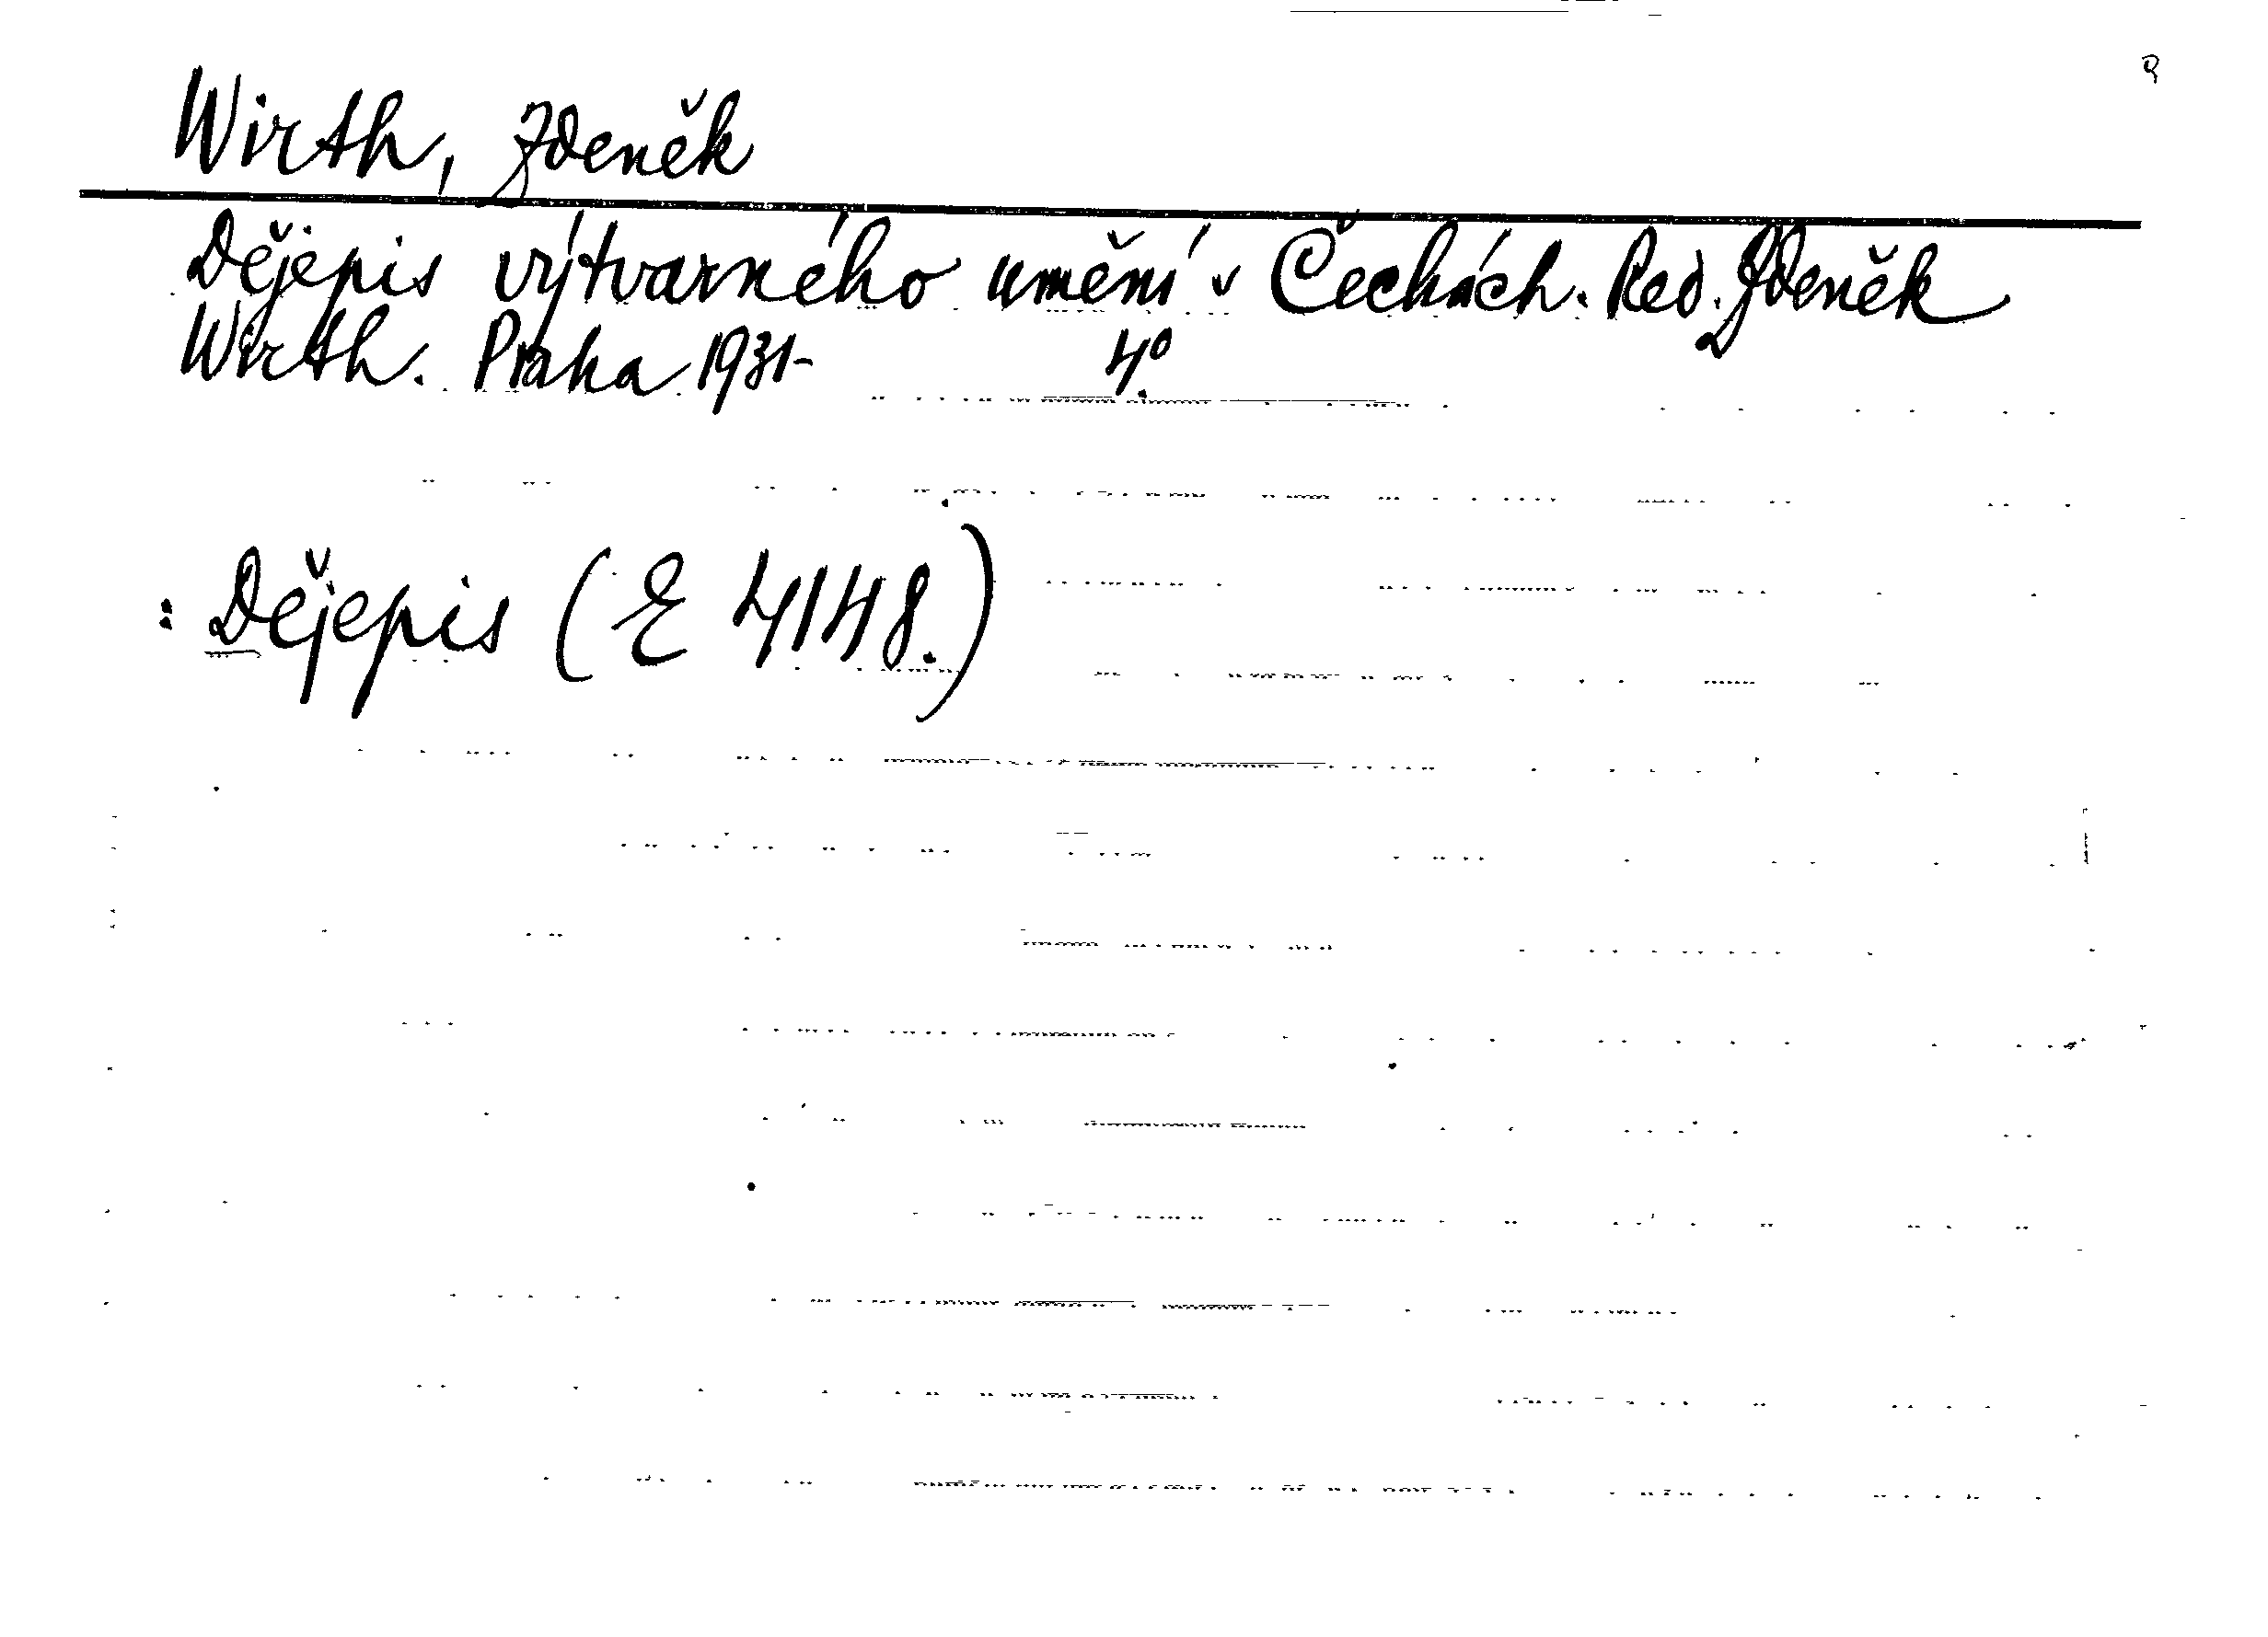 Wirth, Zdeněk
Dějepis výtvarného umění v Čechách. Red. Zdeněk
Wirth. Praha 1931- 4°
: Dějepis (E 4148.)